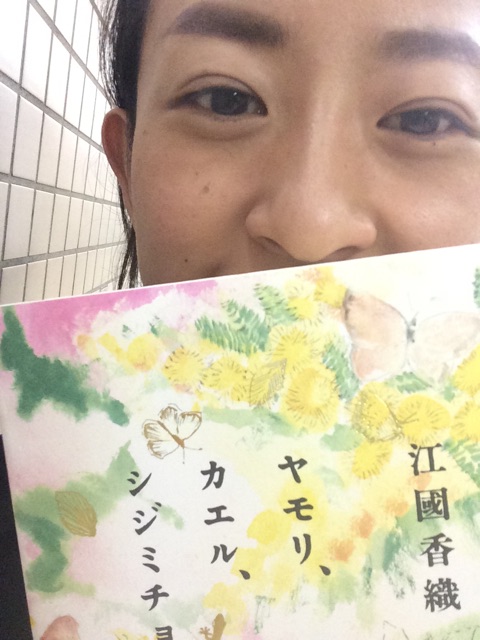 江國香織
ヤモリ、
カエル、
シジミチョ